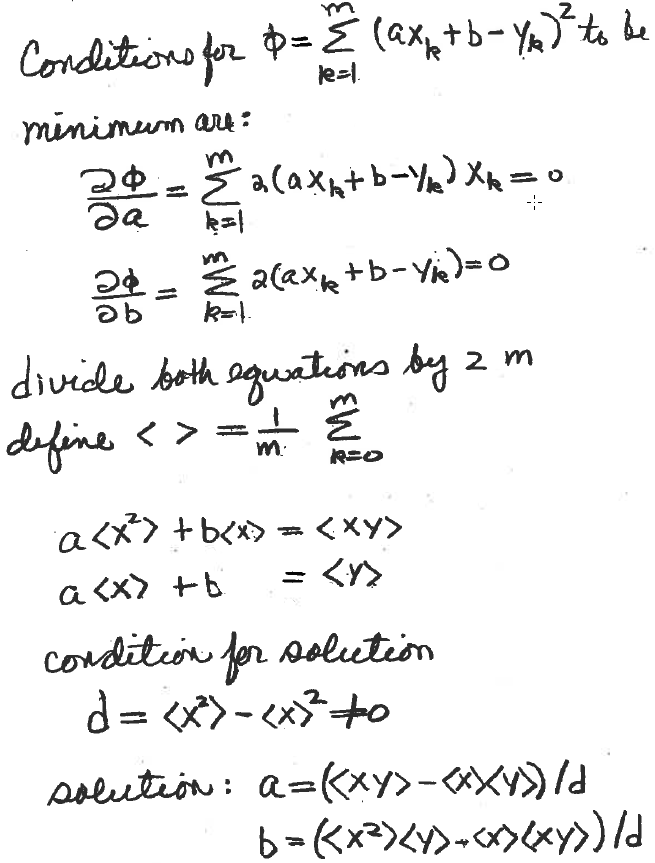 Conditions for ϕ = Σ_{k=1}^{m} (ax_k + b - y_k)² to be
minimum are:
∂ϕ/∂a = Σ_{k=1}^{m} 2(ax_k + b - y_k) x_k = 0
∂ϕ/∂b = Σ_{k=1}^{m} 2(ax_k + b - y_k) = 0
divide both equations by 2 m
define < > = 1/m Σ_{k=0}^{m}
a<x²> + b<x> = <xy>
a<x> + b = <y>
condition for solution
d = <x²> - <x>² ≠ 0
solution: a = (<xy> - <x><y>)/d
b = (<x²><y> - <x><xy>)/d